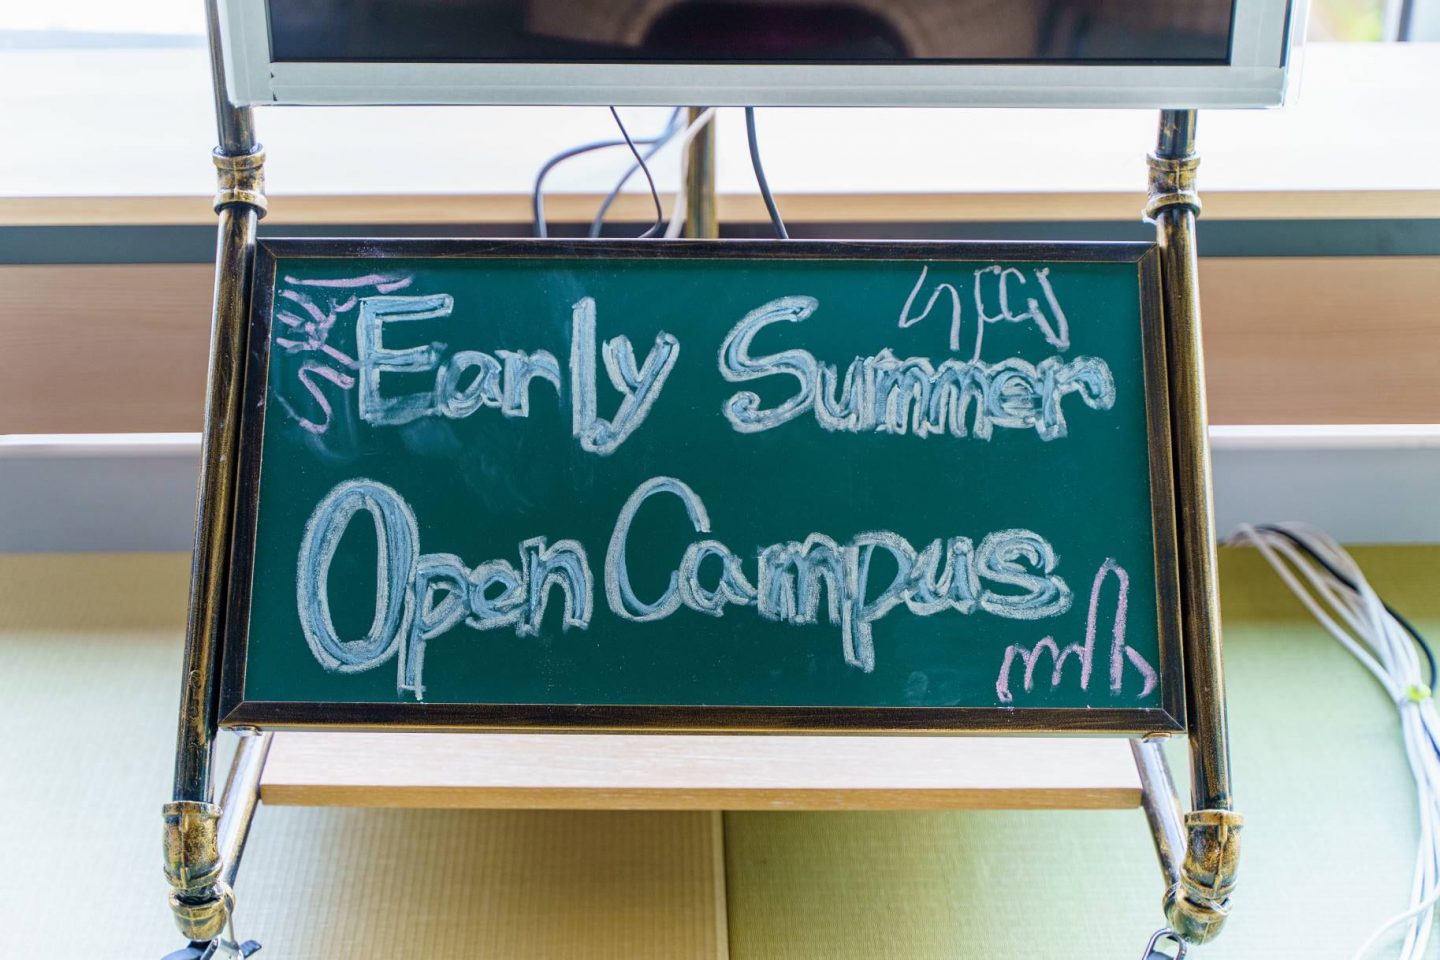 Early Summer
Open Campus